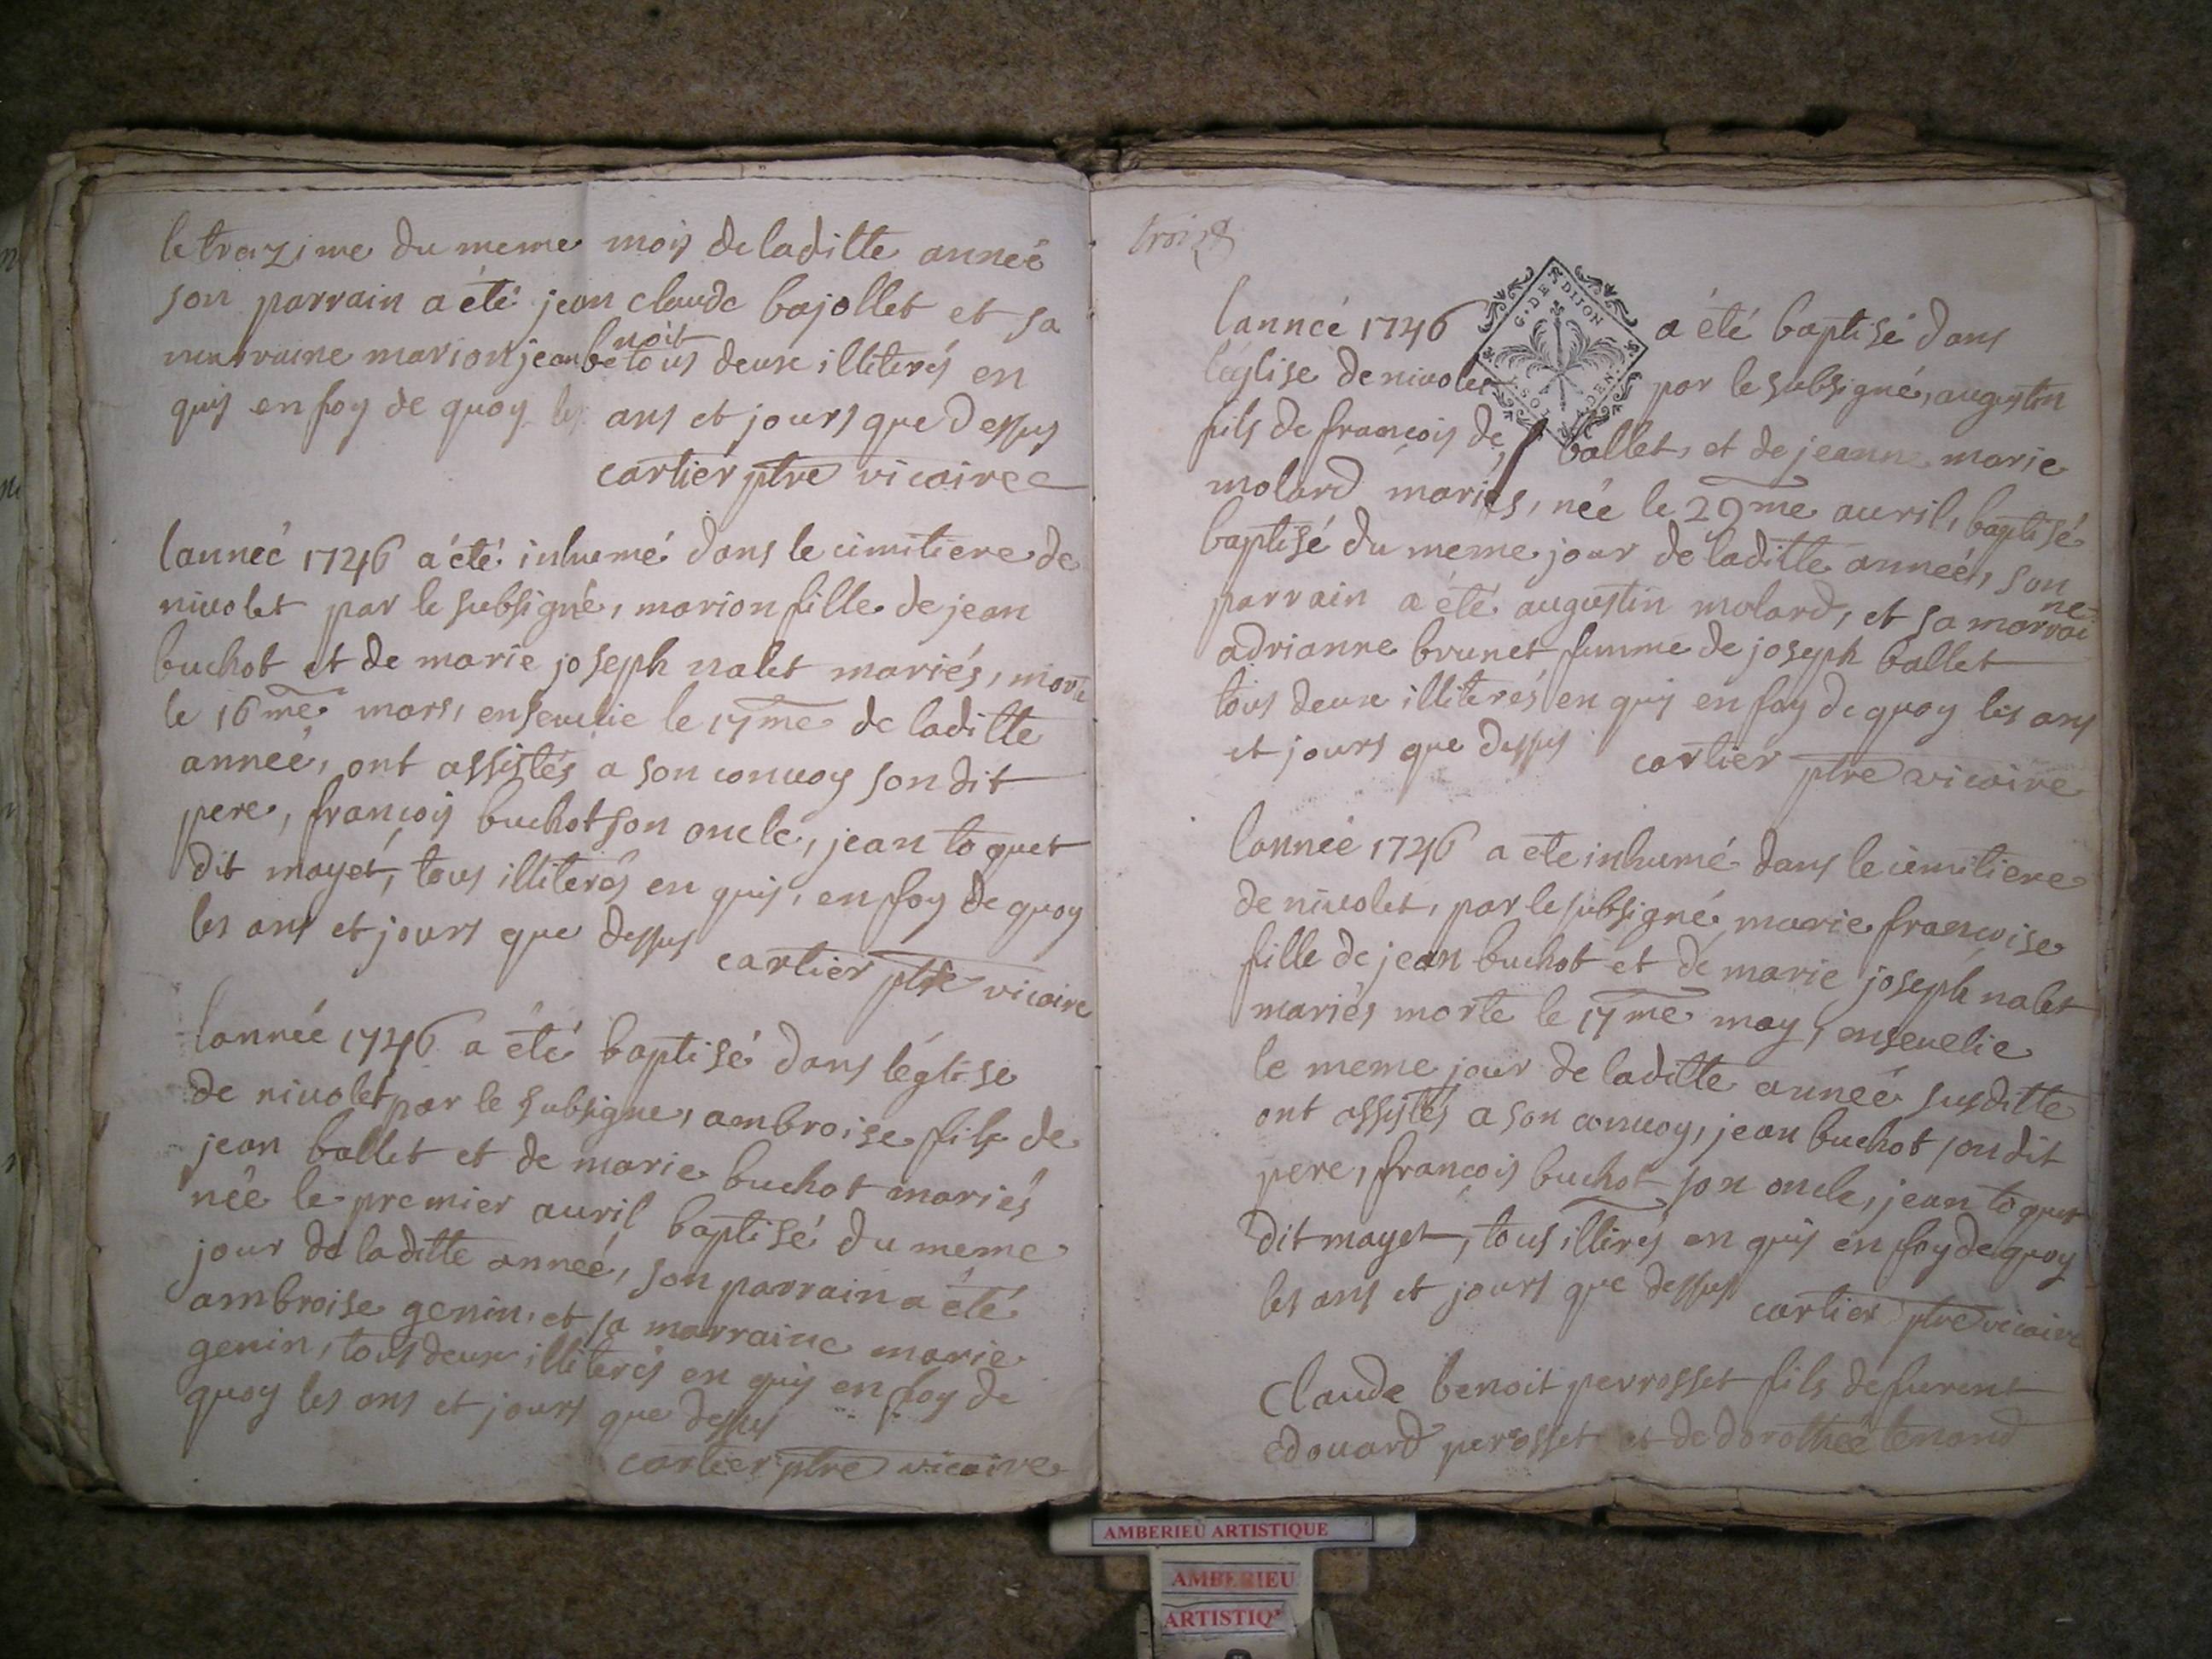 le trezime du meme mois de laditte anneé
son parrain a été jean claude bajollet et sa
marraine marion jean benoit tous deux illiterés en
quis en foy de quoy les ans et jours que dessus
cartier ptre vicaire
lanneé 1746 a été inhumé dans le cimitiere de
nivolet par le subsigné, marion fille de jean
buchot et de marie joseph nalet mariés, morte
le 16me mars, ensevelie le 17me de laditte
anneé, ont assistés a son convoy son dit
pere, françois buchot son oncle, jean toquet
dit mayet, tous illiterés en quis, en foy de quoy
les ans et jours que dessus cartier ptre vicaire
lanneé 1746 a été baptisé dans léglise
de nivolet par le subsigne, ambroise fils de
jean ballet et de marie buchot mariés
née le premier avril baptisé du meme
jour de laditte anneé, son parrain a été
ambroise genin, et sa marraine marie
genin, tous deux illiterés en quis en foy de
quoy les ans et jours que dessus
cartier ptre vicaire
G. DE DIJON
lanneé 1746 a été baptisé dans
léglise de nivolet par le subsigné, augustin
fils de françois de ballet, et de jeanne marie
molard mariés, née le 29me avril, baptisé
baptisé du meme jour de laditte anneé, son
parrain a été augustin molard, et sa marraine
adrianne brunet femme de joseph ballet
tous deux illiterés en quis en foy de quoy les ans
et jours que dessus cartier ptre vicaire
lanneé 1746 a ete inhumé dans le cimitiere
de nivolet, par le subsigné marie françoise
fille de jean buchot et de marie joseph nalet
mariés morte le 17me may, ensevelie
le meme jour de laditte anneé susditte
ont assistés a son convoy, jean buchot son dit
pere, françois buchot son oncle, jean toquet
dit mayet, tous illirés en quis en foy de quoy
les ans et jours que dessus cartier ptre vicaire
Claude benoit perrosset fils de furent
edouard perosset et de dorotheé tenand
AMBERIEU ARTISTIQUE
AMBERIEU
ARTISTIQ